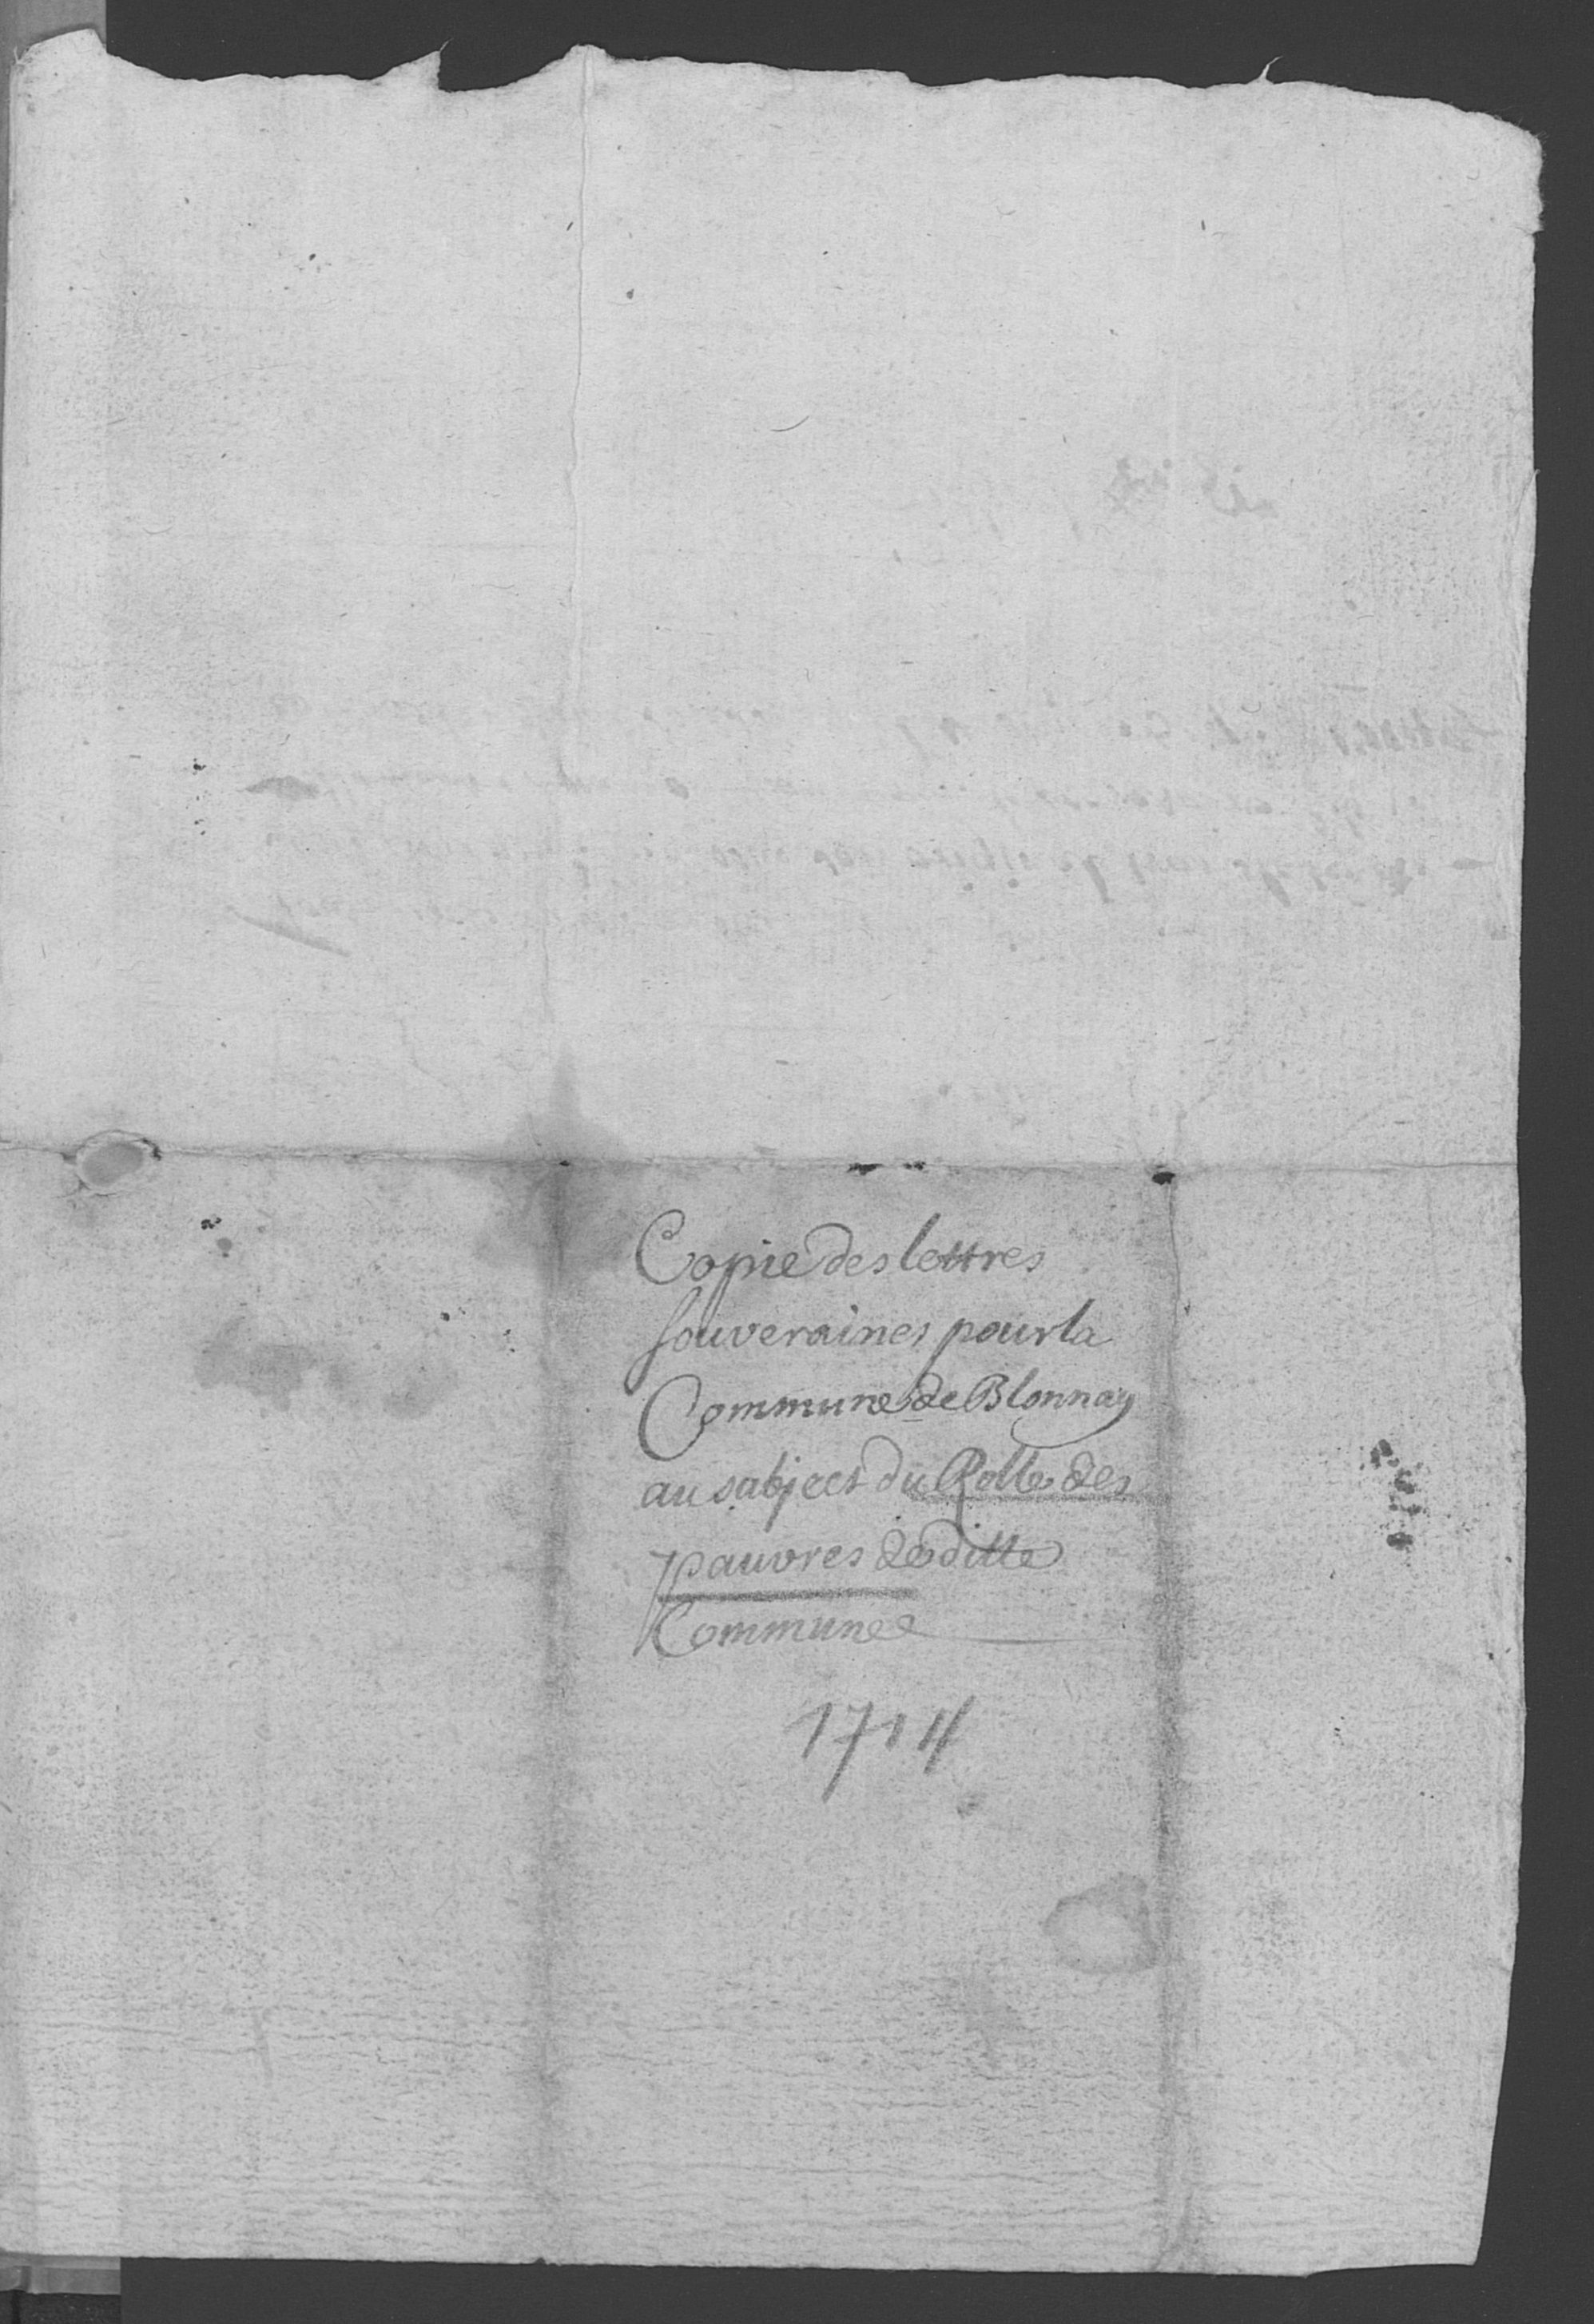 Copie des lettres
souveraines pour la
Commune de Blonnay
au subject du Rolle des
pauvres de ditte
Commune
1714